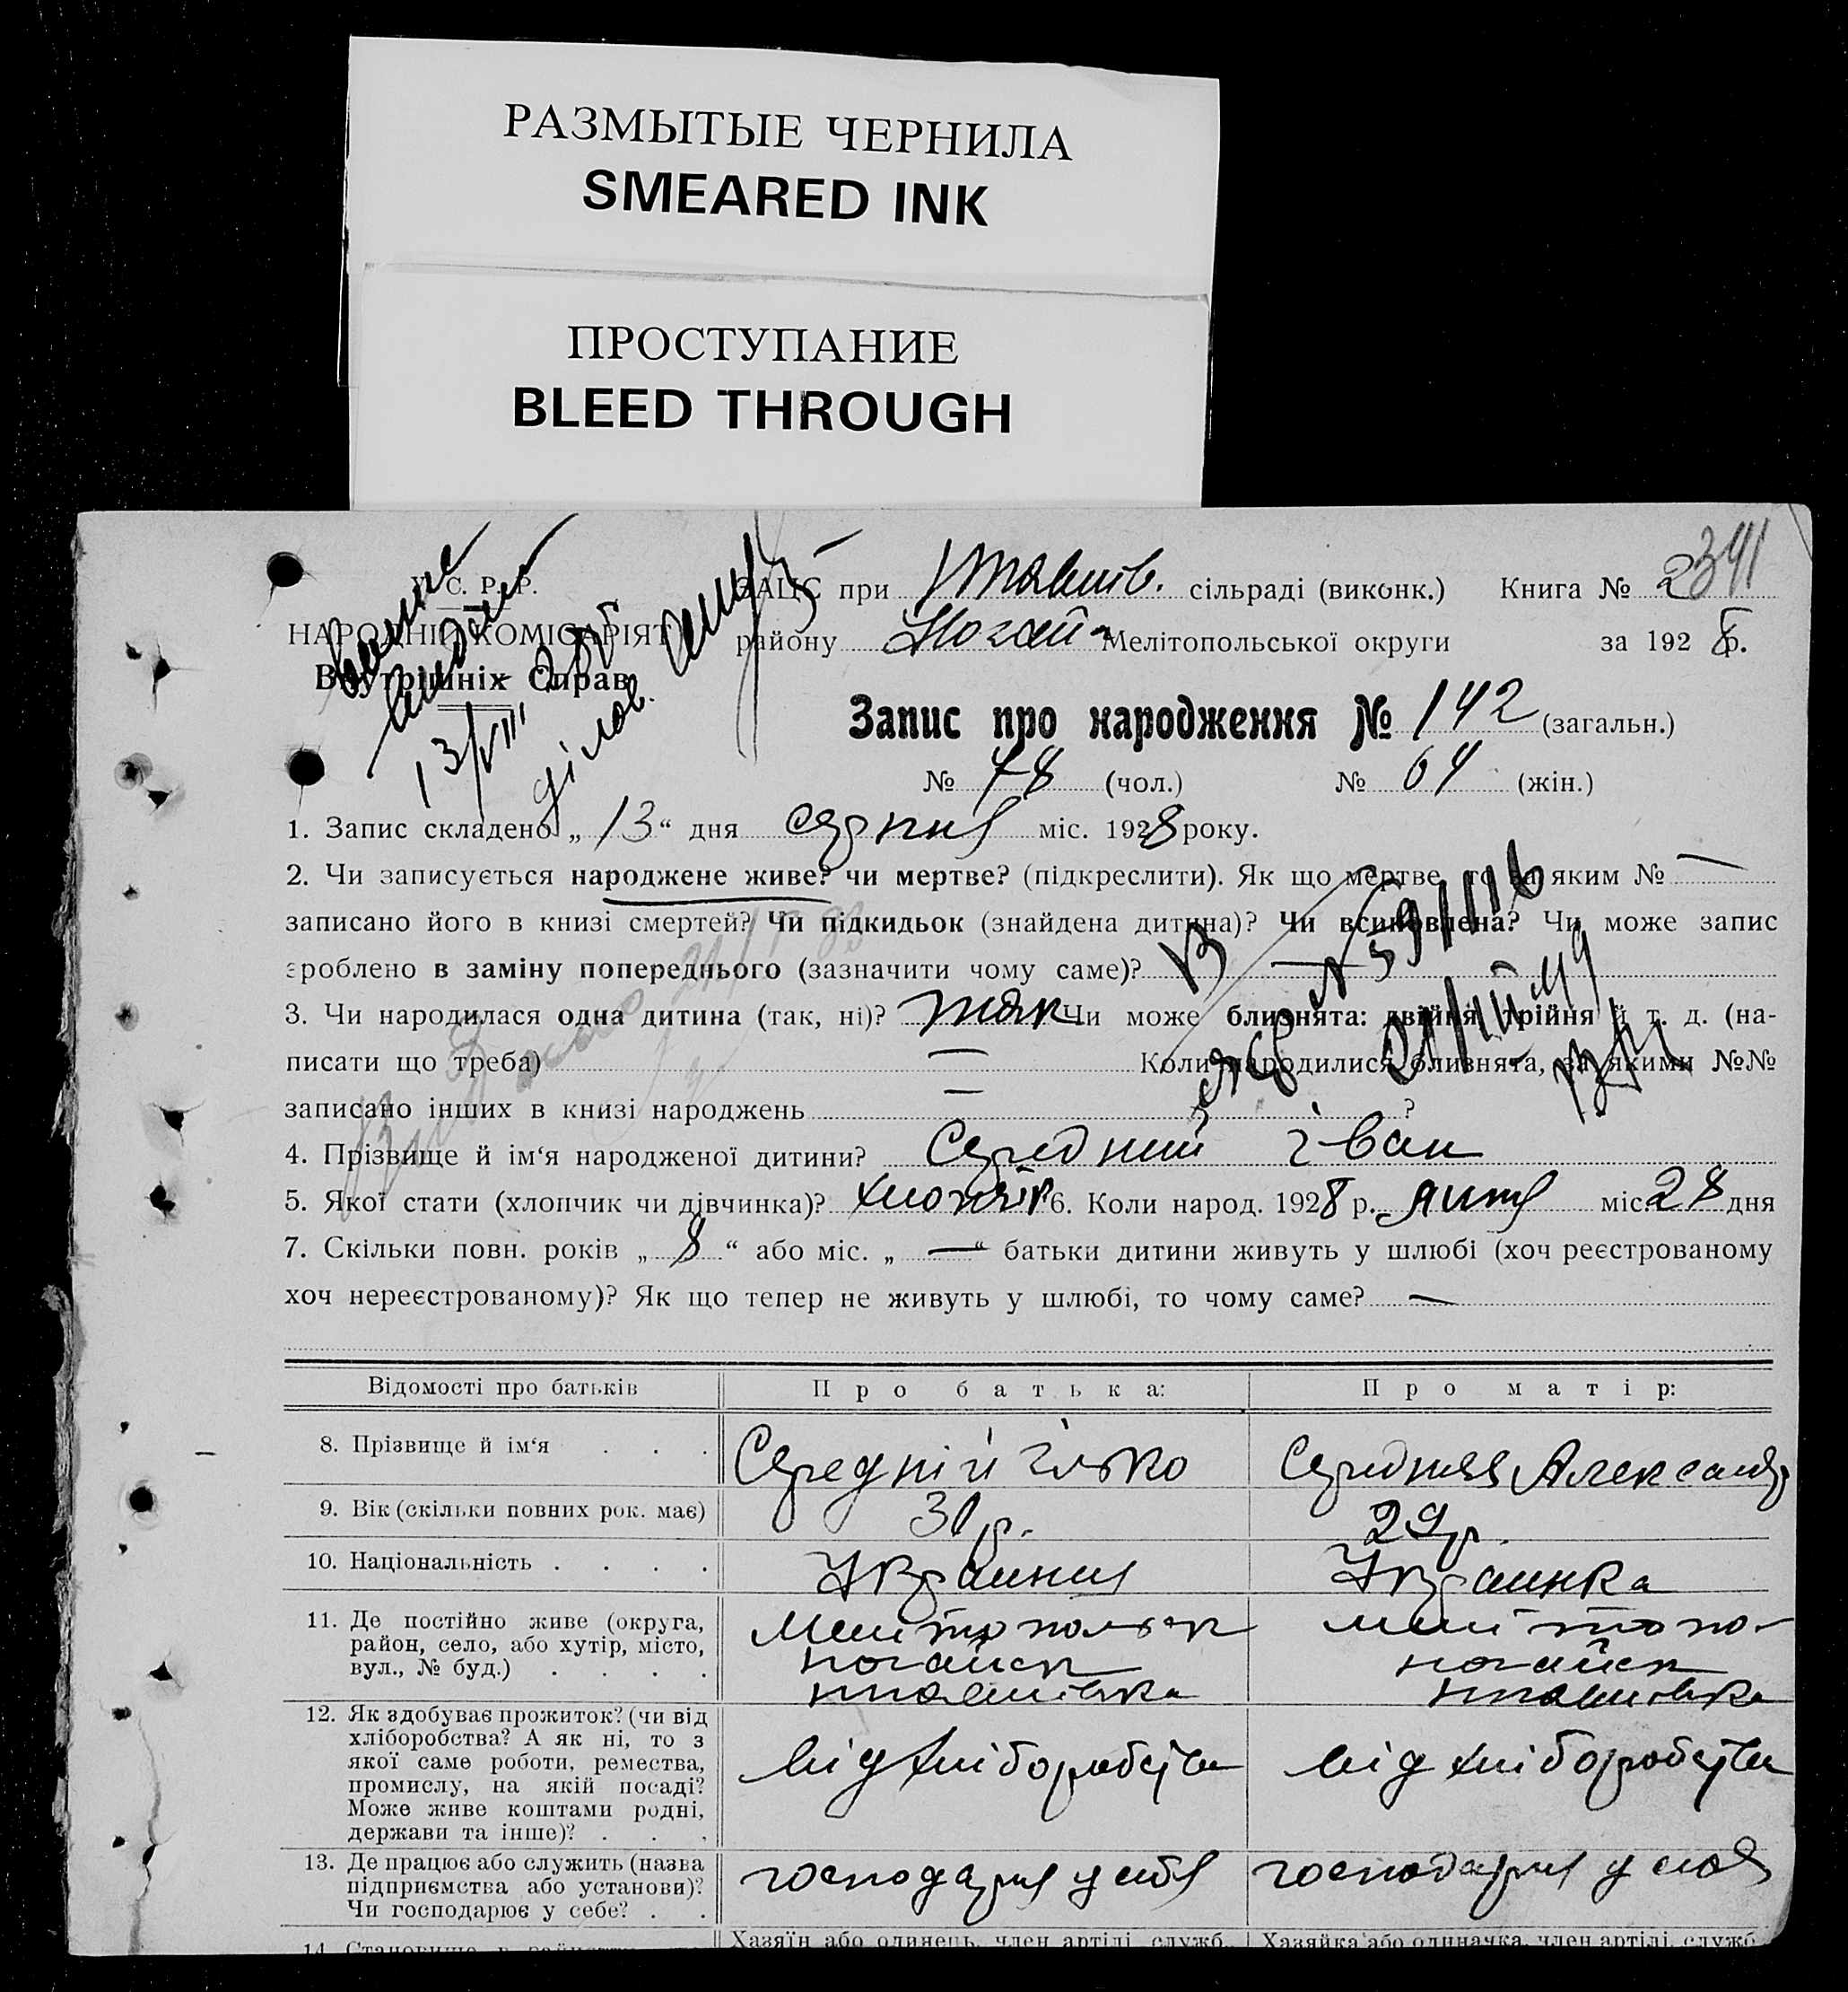 РАЗМЫТЫЕ ЧЕРНИЛА
SMEARED INK
ПРОСТУПАНИЕ
BLEED THROUGH
У. С. Р. Р.
НАРОДНІЙ КОМІСАРІЯТ
Внутрішніх Справ
13/VIII
ЗАЦС при сільраді (виконк.) Книга № 2341
району Ногай- Мелітопольської округи за 1928 р.
Запис про народження № 142 (загальн.)
№ 78 (чол.) № 64 (жін.)
1. Запис складено „13“ дня серпня міс. 1928 року.
2. Чи записується народжене живе? чи мертве? (підкреслити). Як що мертве, то за яким № —
записано його в книзі смертей? Чи підкидьок (знайдена дитина)? Чи всиновлена? Чи може запис
зроблено в заміну попереднього (зазначити чому саме)? —
3. Чи народилася одна дитина (так, ні)? так Чи може близнята: двійня, трійня й т. д. (на-
писати що треба) — Коли народилися близнята, за якими №№
записано інших в книзі народжень — ?
4. Прізвище й ім‘я народженої дитини? Середний Іван
5. Якої стати (хлопчик чи дівчинка)? хлопчик 6. Коли народ. 1928 р. липня міс. 28 дня
7. Скільки повн. років „8“ або міс. „—“ батьки дитини живуть у шлюбі (хоч реєстрованому
хоч нереєстрованому)? Як що тепер не живуть у шлюбі, то чому саме? —
Відомості про батьків Про батька: Про матір:
8. Прізвище й ім‘я . . . Середній Ілько Середняя Александр
9. Вік (скільки повних рок. має) 31 р. 29 р.
10. Національність . . . . Україниц Українка
11. Де постійно живе (округа, Мелітопольск Меліто по-
район, село, або хутір, місто, ногайск ногайск
вул., № буд.) . . . .
12. Як здобуває прожиток? (чи від
хліборобства? А як ні, то з
якої саме роботи, ремества, від хліборобства від хліборобства
промислу, на якій посаді?
Може живе коштами родні,
держави та інше)? . . .
13. Де працює або служить (назва господарня у себя господарня у себя
підприємства або установи)?
Чи господарює у себе? . .
Хазяїн або одинець, член артілі, служб. Хазяйка або одиначка, член артілі, служб